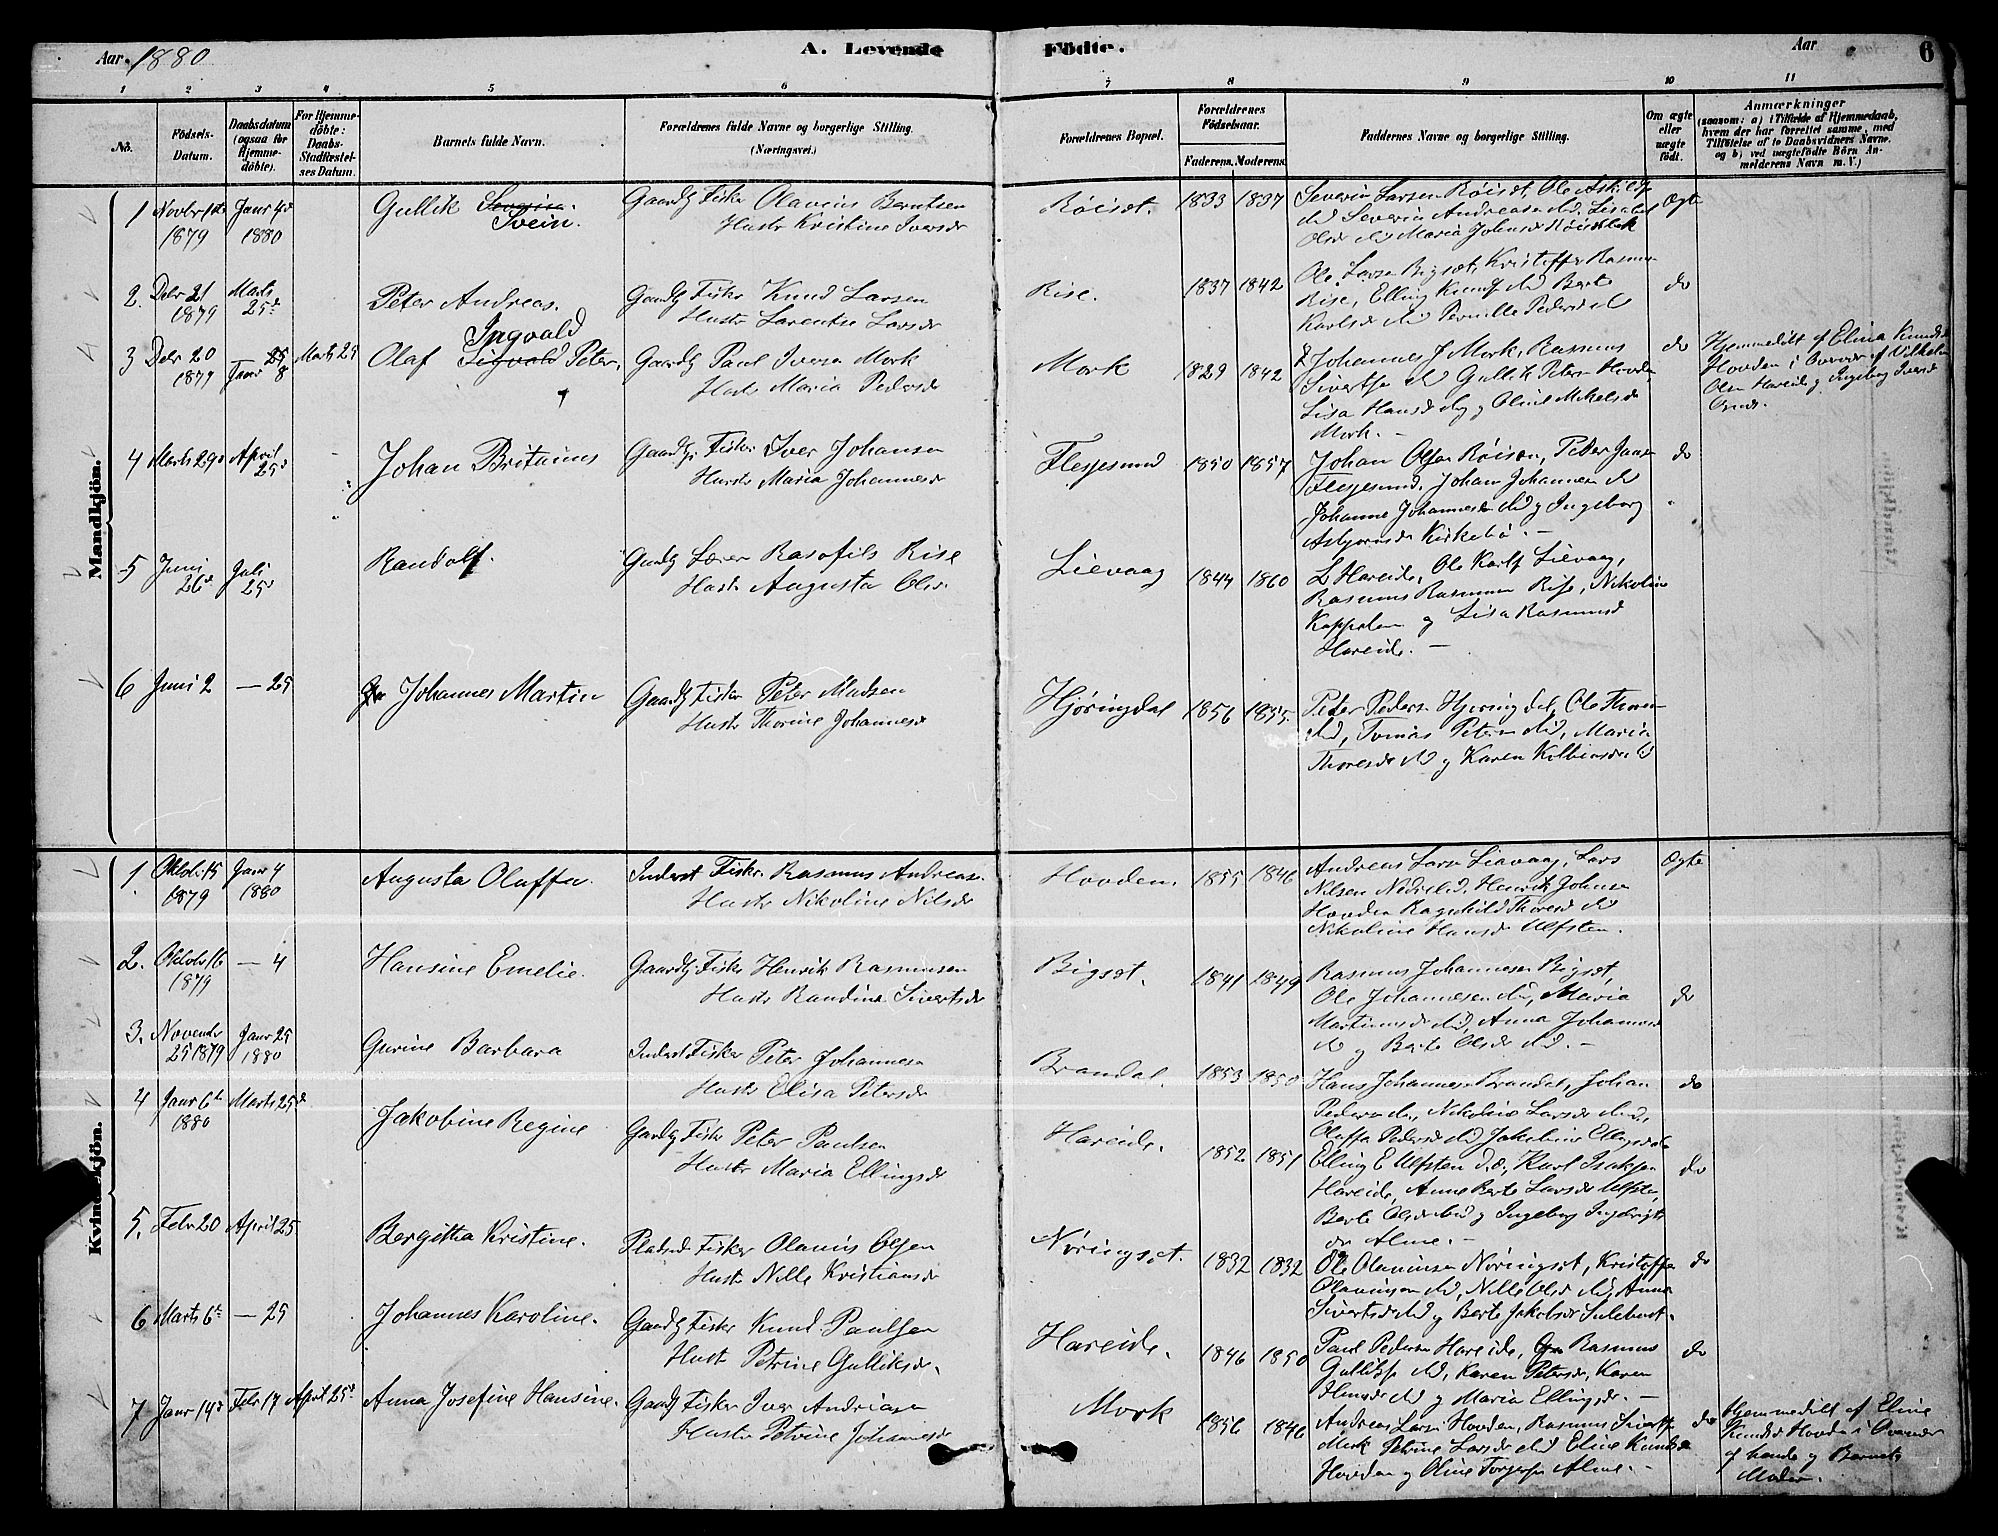 Aar. 1880
A. Levende Födte.
Aar
6
1 2 3 4 5 6 7 8 9 10 11
No.
Födsels-Datum.
Daabsdatum (ogsaa for Hjemme-döbte).
For Hjemme-döbte: Daabs-Stadfæstel-ses Datum.
Barnets fulde Navn.
Forældrenes fulde Navne og borgerlige Stilling.
(Næringsvei.)
Forældrenes Bopæl.
Forældrenes Födselsaar.
Faderens. Moderens.
Faddernes Navne og borgerlige Stilling.
Om ægte eller uægte født.
Anmærkninger
(saasom: a) i Tilfælde af Hjemmedaab, hvem der har forrettet samme, med Tilföielse af to Daabsvidners Navne. og b) ved uægtefödte Börn An-melderens Navn m. V.)
Mandkjön.
1 Novbr 1st 1879 Janr 4d 1880 Gullik Svein. Gaardb Fisker Olavius Berntsen
Hustr Kristine Iversdr
Röiset. 1833 1837 Severin Larsen Röiset, Ole
dd Severin Andreasen dd, Lisabet
Olsdr dd Maria Johansdr
Ægte
2. Debr 21 1879 Marts 25d Peter Andreas. Gaardb Fisker Knud Larsen
Hustr Larentse Larsdr
Rise. 1837 1842 Ole Larsen Bigset, Kristoffer Rasmus
Rise, Elling Knudsen dd Berte
Karlsdr dd Pernille Pedersdr dd
do
3 Debr 20 1879 Janr 8 Marts 25 Olaf Ingvald Sigvald Peter. Gaardb Paul Iversen Mork
Hustr Maria Pedersdr
Mork 1829 1842 Johannes J Mork, Rasmus
Sivertsen dd Gullik Petersen Hovden
Lisa Hansdr og Oline Mikelsdr
Mork. —
do
Hjemmedöbt af Elina Knudsdr
Hovden i Overvær af Vilhelm
Olsen Hareide og Ingeborg Iversdr
4 Marts 29d April 25d Johan Britanus Gaardbr. Fisker Iver Johansen
Hustr Maria Johannesdr
Flesjesund 1850 1857 Johan Olsen Röisen, Peder Jansen
Flesjesund, Johan Johannesen dd
Johanne Johannesdr dd og Ingeborg
Asbjornsdr Kirkebö. —
do
5 Juni 26d Juli 25d Randolf. Gaardb Lærer Rasofils Rise
Hustr Augusta Olsdr
Lievaag 1844 1860 L Hareide, Ole Karls Lievaag,
Rasmus Rasmussen Rise, Nikoline
Kappelen og Lisa Rasmusdr
Hareide. —
6 Juni 2 — 25 Johannes Martin Gaardb Fisker Peter Madsen
Hustr Thorine Johannesdr
Hjöringdal 1856 1855. Peter Pedersen Hjöringdal, Ole Thoresen
dd, Tomas Petersen dd, Maria
Thoresdr dd og Karen Kolbensdr dd
Kvindekjön.
1. Oktob 15 1879 Janr 4 1880 Augusta Oluffa. Inderst Fisker. Rasmus Andreasen
Hustr Nikoline Nilsdr
Hovden. 1855 1846 Andreas Larsen Liavaag, Lars
Nilsen, Henrik Johnsen
Hovden Ragnhild Thoresdr dd
Nikoline Hansdr Ulfsten.
Ægte
2. Oktobr 16 1879 — 4 Hansine Emelie. Gaardbr. Fisker Henrik Rasmusen
Hustr Randine Sivertsdr
Bigset. 1841 1849 Rasmus Johannesen Bigset,
Ole Johannesen dd, Maria
Martinusdr dd, Anna Johannesdr
dd og Berte Olsdr dd. —
do
3. Novembr 25 1879 Janr 25 1880 Gurine Barbara Inderst Fisker Peter Johannesen
Hustr Elisa Petersdr
Brandal. 1853 1850 Hans Johannesen Brandal, Johan
Pedersen dd, Nikoline Larsdr dd,
Oluffa Pedersdr dd Jakobine Ellingsdr
do
4 Janr 6te 1880 Marts 25d Jakobine Regine Gaardb Fisker Peter Paulsen
Hustr Maria Ellingsdr
Hareide. 1852 1851 Elling E Ulfsten d.æ, Karl Isaksen
Hareide, Anne Berte Larsdr Ulfsten,
Berte Olsdr dd og Ingeborg Ingebrigts
dr Alme. —
do
5. Febr 20 April 25 Bergitha Kristine. Pladsmd Fisker Olavius Olsen
Hustr Nille Kristiansdr
Nöringset. 1832 1832 Ole Olavinsen Nöringset, Kristoffer
Olavinsen dd, Nille Olsdr dd, Anne
Sivertsdr dd og Berte Jakobsdr Sulebust.
do
6 Marts 6te — 25 Johannes Karoline. Gaardb Fisker Knud Paulsen
Hustr Petrine Gulliksdr.
Hareide. 1846 1850 Paul Pedersen Hareide, Rasmus
Gulliksen dd, Karen Petersdr, Karen
Hansdr dd og Maria Ellingsdr. —
do
7 Janr 14d Febr 17 April 25d Anna Josefine Hansine. Gaardb Fisker Iver Andreasen
Hustr Petrine Johannesdr
Mork 1856 1846 Andreas Larsen Hovden, Rasmus Sivertsen
Mork Petrine Larsdr dd Eline Knudsdr
Hovden og Oline Torgersen Alme. —
do
Hjemmedöbt af Eline
Knudsdr Hovden i Overvær
af hende og Barnets
Moder.